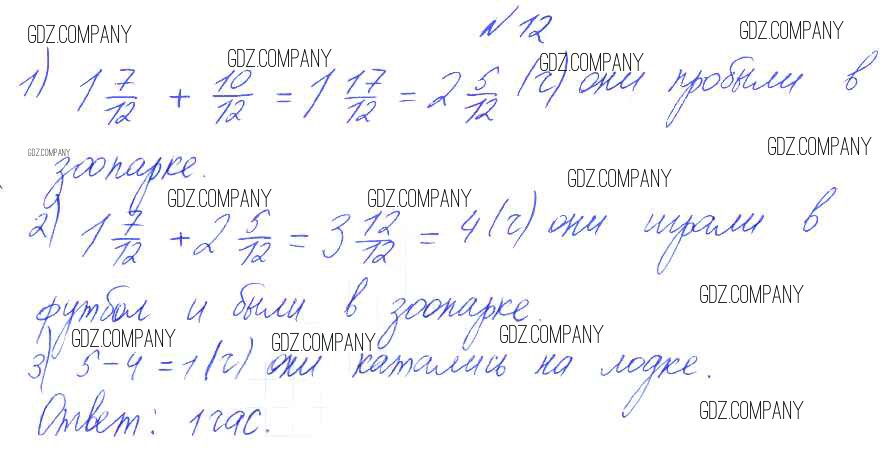 № 12
GDZ.COMPANY GDZ.COMPANY
GDZ.COMPANY GDZ.COMPANY
1) 1 7/12 + 10/12 = 1 17/12 = 2 5/12 (г) они пробыли в
GDZ.COMPANY
GDZ.COMPANY
зоопарке.
GDZ.COMPANY
GDZ.COMPANY GDZ.COMPANY
2) 1 7/12 + 2 5/12 = 3 12/12 = 4 (г) они играли в
GDZ.COMPANY
футбол и были в зоопарке.
GDZ.COMPANY GDZ.COMPANY GDZ.COMPANY
3) 5 - 4 = 1 (г) они катались на лодке.
GDZ.COMPANY
Ответ: 1 час.